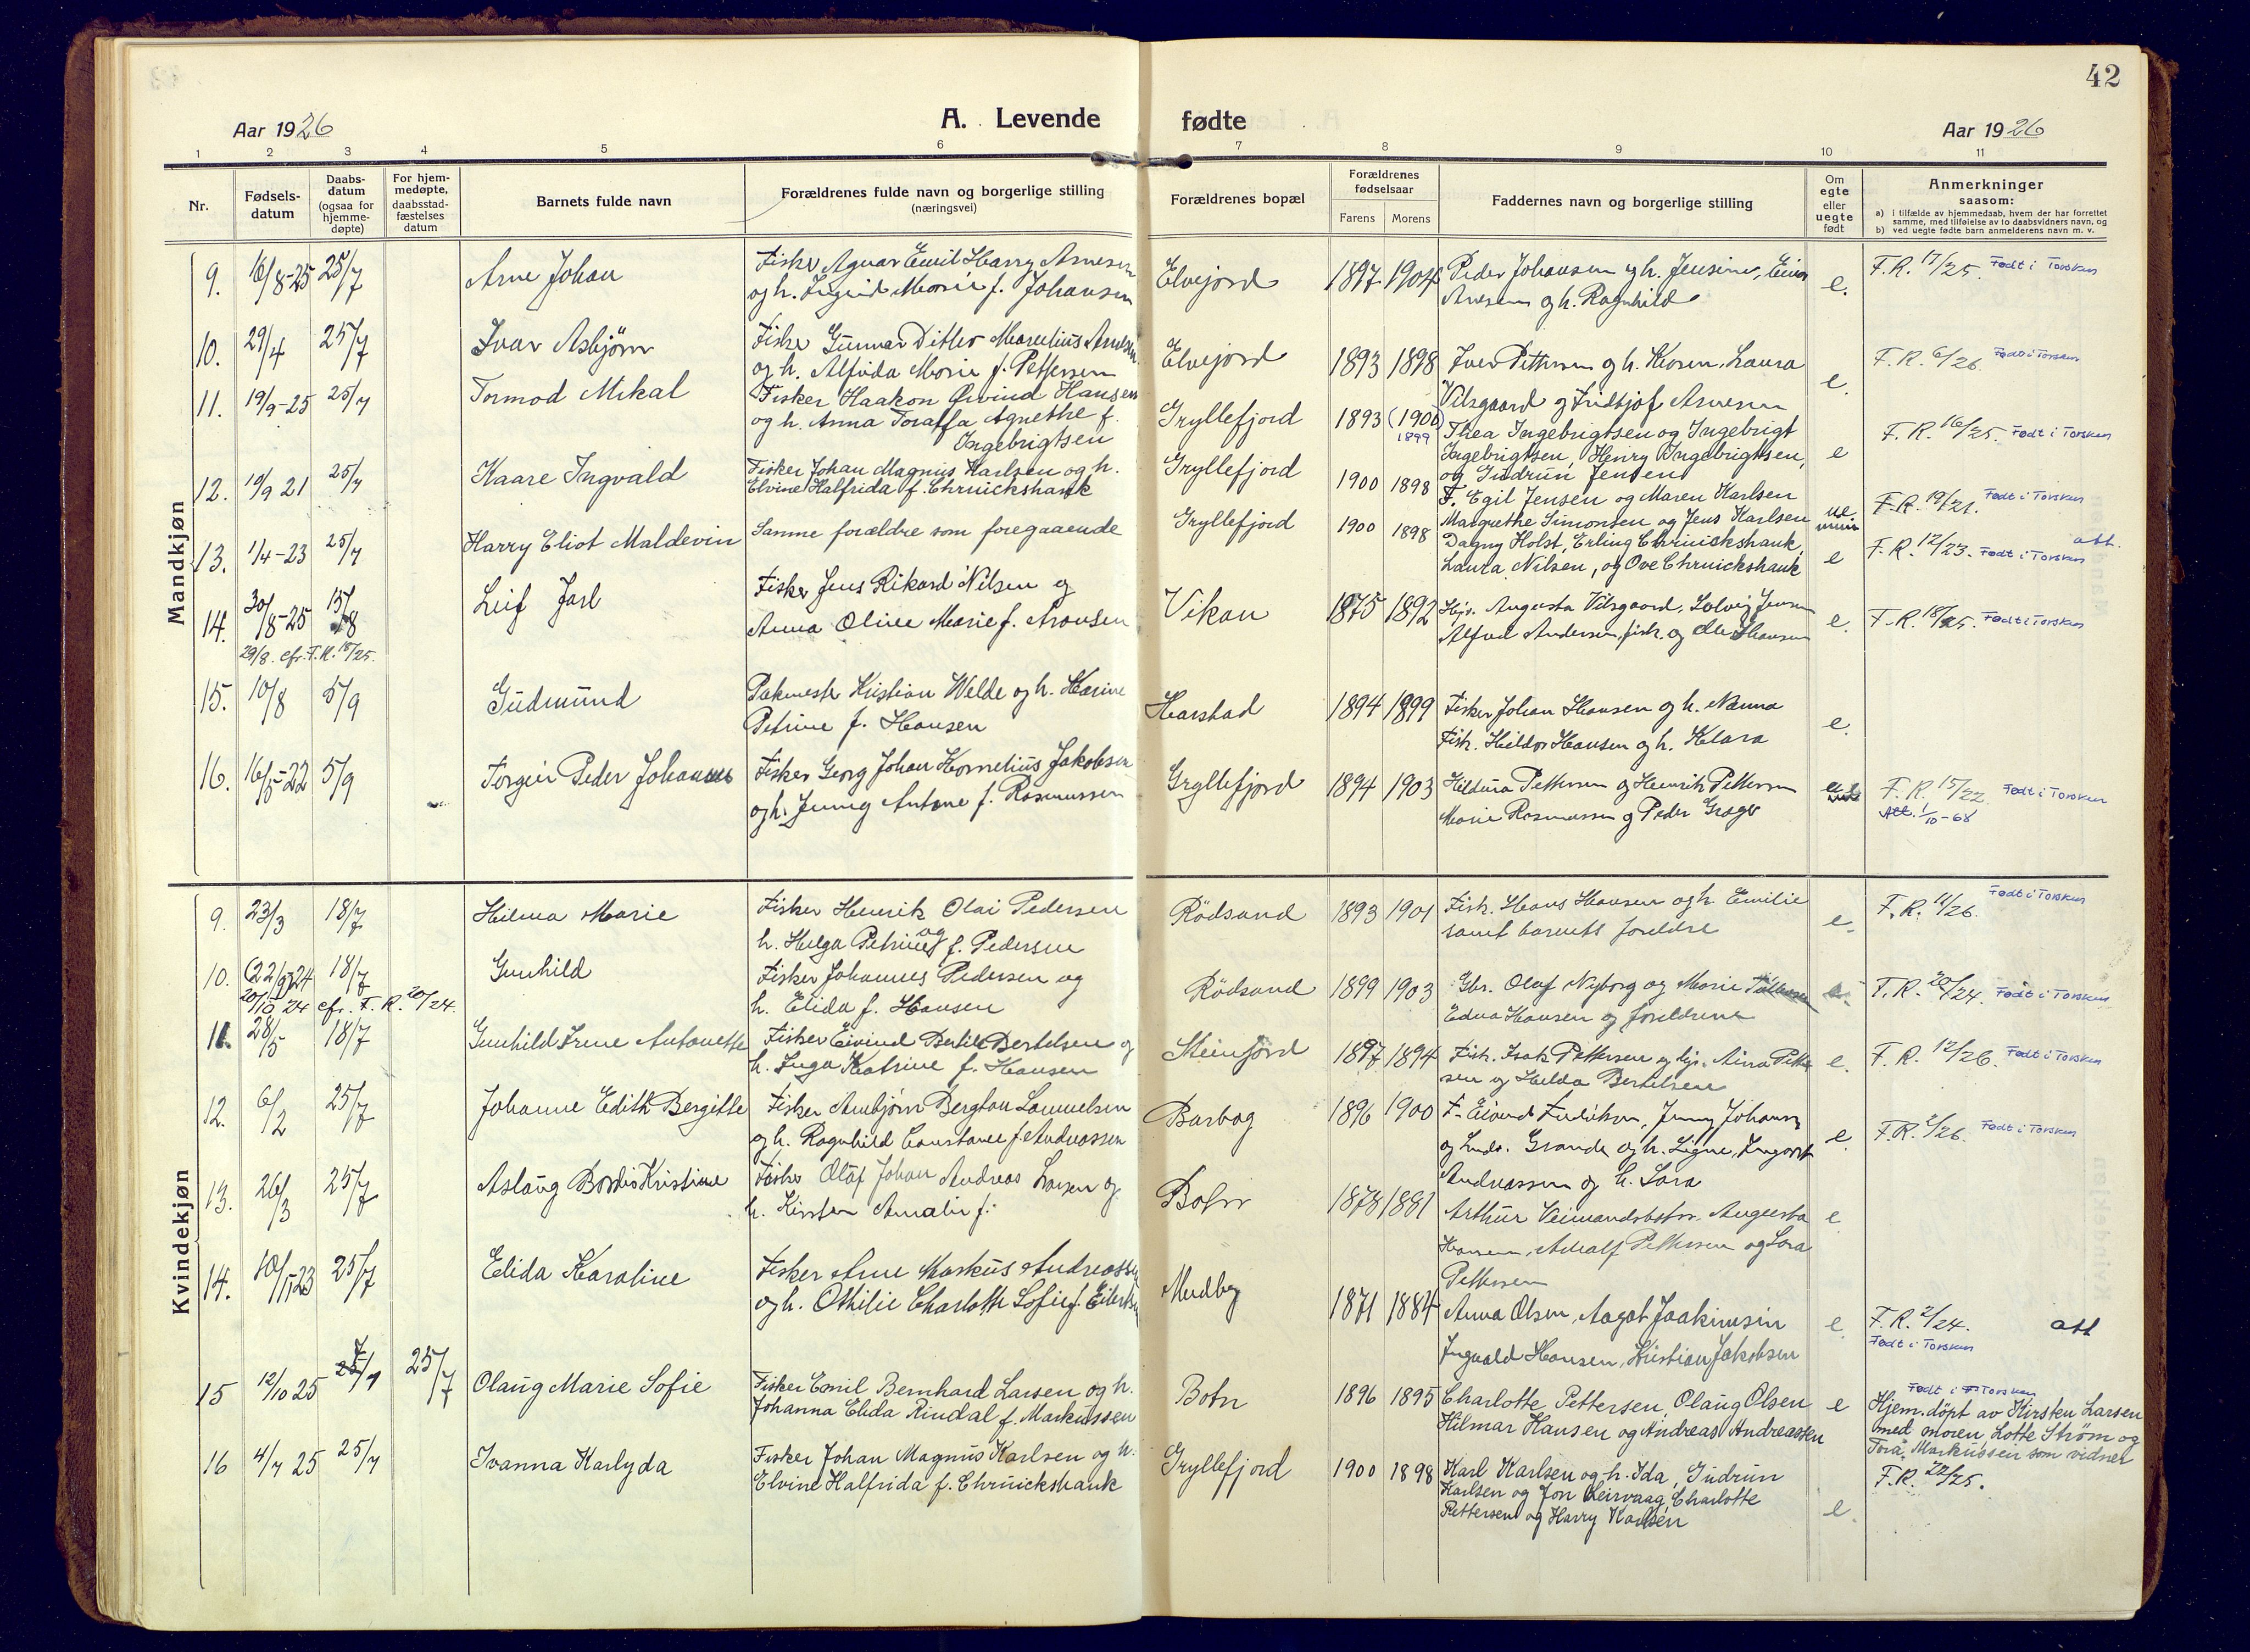 42
Aar 1926
A. Levende
fødte
Aar 1926
1 2 3 4 5 6 7 8 9 10 11
Nr.
Fødsels-
datum
Daabs-
datum
(ogsaa for
hjemme-
døpte)
For hjem-
medøpte,
daabsstad-
fæstelses
datum
Barnets fulde navn
Forældrenes fulde navn og borgerlige stilling
(næringsvei)
Forældrenes bopæl
Forældrenes
fødselsaar
Farens Morens
Faddernes navn og borgerlige stilling
Om
egte
eller
uegte
født
Anmerkninger
saasom:
a) i tilfælde av hjemmedaab, hvem der har forrettet
samme, med tilføielse av to daabsvidners navn, og
b) ved uegte fødte barn anmelderens navn m. v.
Mandkjøn
9. 16/8-25 25/7 Arne Johan
Fisker Agnar Emil Harry Arnesen
og h. Ingrid Marie f. Johansen
Elvejord 1897 1904
Peder Johansen og h. Jensine, Einar
Arnesen og h. Ragnhild
e. F.R. 17/25. Født i Torsken
10. 29/4 25/7 Ivar Asbjörn
Fisker Gunnar Ditlev Marelius Arnesen
og h. Alfida Marie f. Pettersen
Elvejord 1893 1898
Iver Pettersen og h. Karen, Laura
Vilsgaard og Fridtjof Arnesen
e. F.R. 6/26. Født i Torsken
11. 19/9-25 25/7 Tormod Mikal
Fisker Haakon Øivind Hansen
og h. Anna Toraffa Agnethe f.
Ingebrigtsen
Gryllefjord 1893 (1900)
1899
Thea Ingebrigtsen og Ingebrigt
Ingebrigtsen, Henry Ingebrigtsen,
og Gudrun Jensen
e F.R. 16/25. Født i Torsken
12. 19/9 21 25/7 Kaare Ingvald
Fisker Johan Magnus Karlsen og h.
Elvine Halfrida f. Chruickshank
Gryllefjord 1900 1898
F. Egil Jensen og Maren Karlsen
Margrethe Simonsen og Jens Karlsen
ue. F.R. 19/21. Født i Torsken
att.
13. 1/4-23 25/7 Harry Eliot Maldevin
Samme forældre som foregaaende
Gryllefjord 1900 1898
Dagny Holst, Erling Chruickshank,
Laura Nilsen, og Ove Chruickshank
e F.R. 12/23. Født i Torsken
14. 30/8-25 15/8 Leif Jarl
29/8. cfr. F.R. 18/25.
Fisker Jens Rikard Nilsen og
Anna Oline Marie f. Aronsen
Vikan 1875 1892
Hjr. Augusta Vilsgaard, Solveig Jensen
Alfred Andersen, fisk. og Ole Hansen
e. F.R. 18/25. Født i Torsken
15. 10/8 5/9 Gudmund
Pakmester Kristian Welde og h. Harine
Petrine f. Hansen
Harstad 1894 1899
Fisker Johan Hansen og h. Nanna
Fisk. Hildor Hansen og h. Klara
e.
16. 16/5-22 5/9 Torgeir Peder Johannes
Fisker Georg Johan Kornelius Jakobsen
og h. Jenny Antone f. Rasmussen
Gryllefjord 1894 1903
Hildura Pettersen og Henrik Pettersen
Marie Rasmussen og Peder
F.R. 15/22. Født i Torsken
Att. 1/10-68
Kvindekjøn
9. 23/3 18/7 Hilma Marie
Fisker Henrik Olai Pedersen
og
h. Helga Petrine f. Pedersen
Rödsand 1893 1901
Fisk. Hans Hansen og h. Emilie
samt barnets foreldre
e. F.R. 11/26. Født i Torsken
10. (22/9) 24 18/7 Gunhild
20/10 24 cfr. F.R. 20/24.
Fisker Johannes Pedersen og
h. Elida f. Hansen
Rödsand 1899 1903
Gbr. Olaf Nyborg og Marie
Edna Hansen og foreldrene
e. F.R. 20/24. Født i Torsken
11. 28/5 18/7 Gunhild Irene Antonette
Fisker Eivind Bertil Bertelsen og
h. Inga Katrine f. Hansen
Steinfjord 1897 1894
Fisk. Isak Pettersen og hjr. Aina Petter
sen og Hilda Bertelsen
e. F.R. 12/26. Født i Torsken
12. 6/2 25/7 Johanne Edith Bergitte
Fisker Arnbjörn Bergton Samuelsen
og h. Ragnhild Constanse f. Andreassen
Barbog 1896 1900
F. Eivind Fredriksen, Jenny Johansen
og Grande og h. Signe, Ingvart
Andreassen og h. Lara
e. F.R. 2/26. Født i Torsken
13. 26/3 25/7 Aslaug Bordis Kristine
Fisker Olaf Johan Andreas Larsen og
h. Kirsten Amalie f.
Botn 1878 1881
Arthur Veimandsbotn, Augusta
Hansen, Adealf Pettersen og Lara
Pettersen
e
14. 10/11 23 25/7 Elida Karoline
Fisker Arne Markus Andreassen
og h. Othilie Charlotte Sofie f. Eilertsen
Medby 1871 1884
Anna Olsen, Aagot Joakimsen
Ingvald Hansen, Kristian Jakobsen
e. F.R. 2/24. att
Født i Torsken
15 12/10 25 25/7 Olaug Marie Sofie
Fisker Emil Bernhard Larsen og h.
Johanna Elida Rindal f. Markussen
Botn 1896 1895
Charlotte Pettersen, Olaug Olsen
Hilmar Hansen og Andreas Andreassen
e Født i Torsken
Hjem.döpt av Kirsten Larsen
med moren, Lotte Ström og
Tora Markussen som vidner
16 4/7 25 25/7 Ivanna Karlyda
Fisker Johan Magnus Karlsen og h.
Elvine Halfrida f. Chruickshank
Gryllefjord 1900 1898
Karl Karlsen og h. Ida, Gudrun
Karlsen og Jon Leirvaag, Charlotte
Pettersen og Harry Karlsen
e. F.R. 22/25.